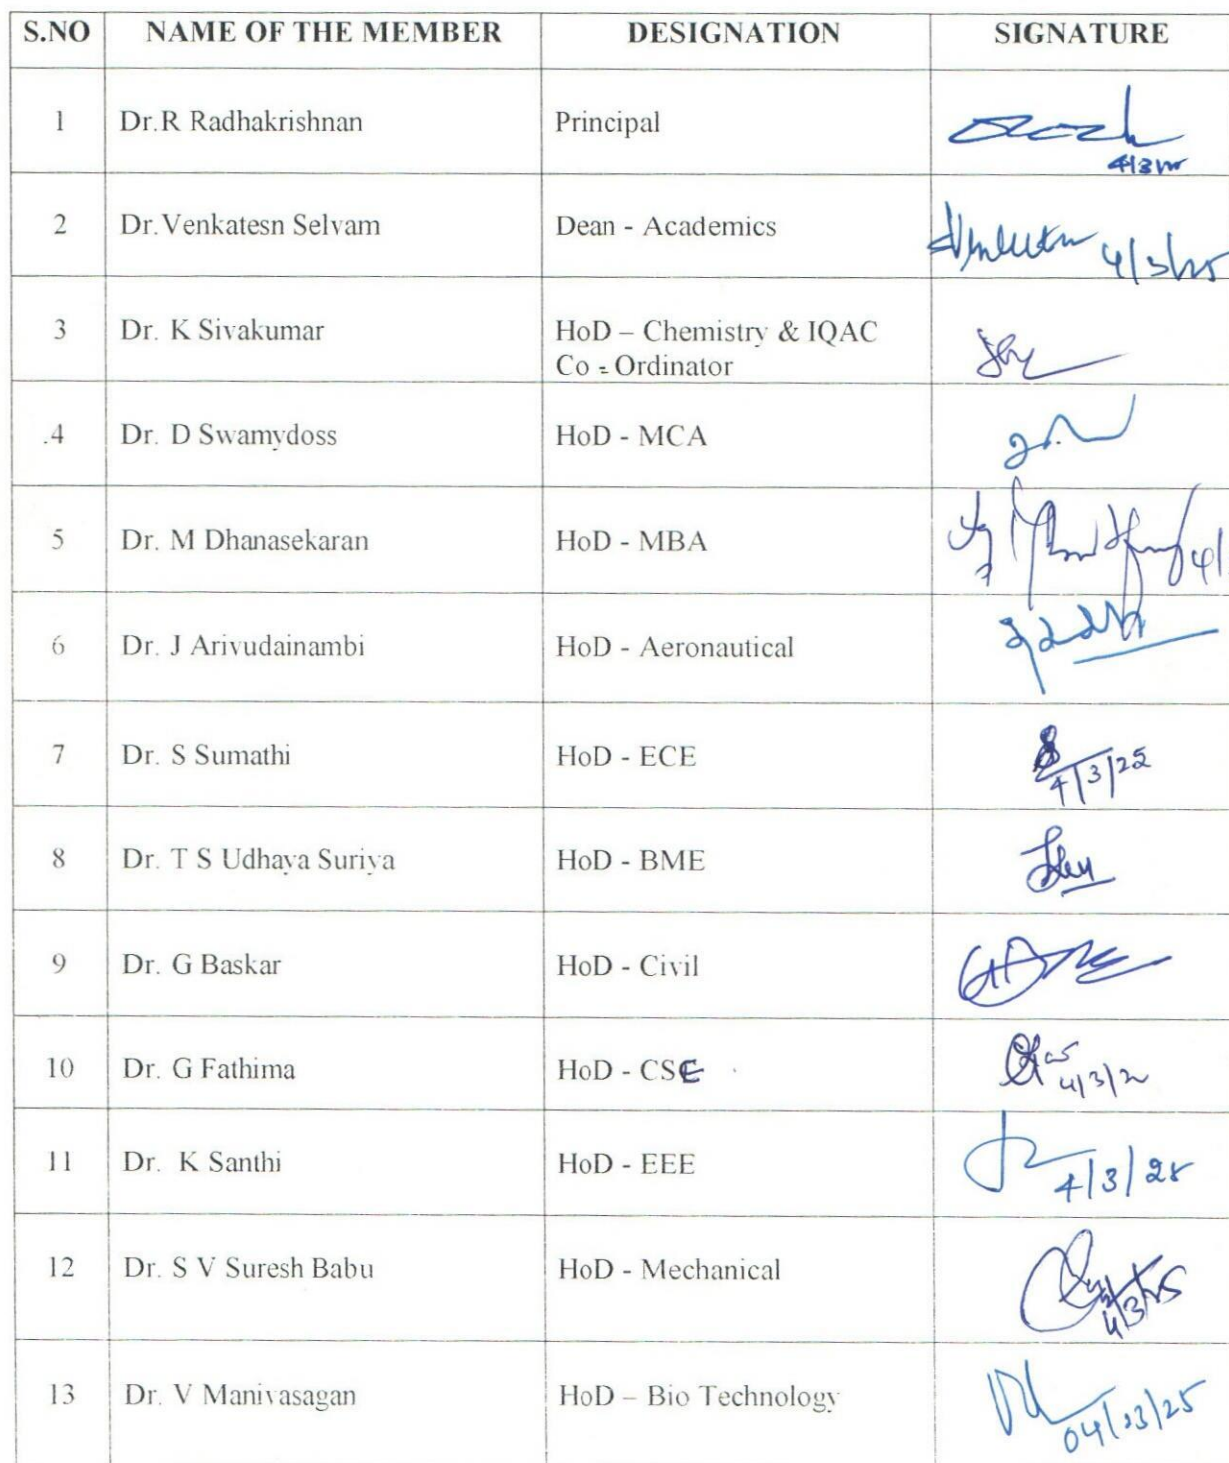 S.NO NAME OF THE MEMBER DESIGNATION SIGNATURE
1 Dr.R Radhakrishnan Principal
4/3/25
2 Dr.Venkatesn Selvam Dean - Academics
4/3/25
3 Dr. K Sivakumar HoD – Chemistry & IQAC
Co - Ordinator
.4 Dr. D Swamydoss HoD - MCA
5 Dr. M Dhanasekaran HoD - MBA
4/
6 Dr. J Arivudainambi HoD - Aeronautical
7 Dr. S Sumathi HoD - ECE
4/3/25
8 Dr. T S Udhaya Suriya HoD - BME
9 Dr. G Baskar HoD - Civil
10 Dr. G Fathima HoD - CSE
4/3/2
11 Dr. K Santhi HoD - EEE
4/3/25
12 Dr. S V Suresh Babu HoD - Mechanical
4/3/25
13 Dr. V Manivasagan HoD – Bio Technology
04/03/25